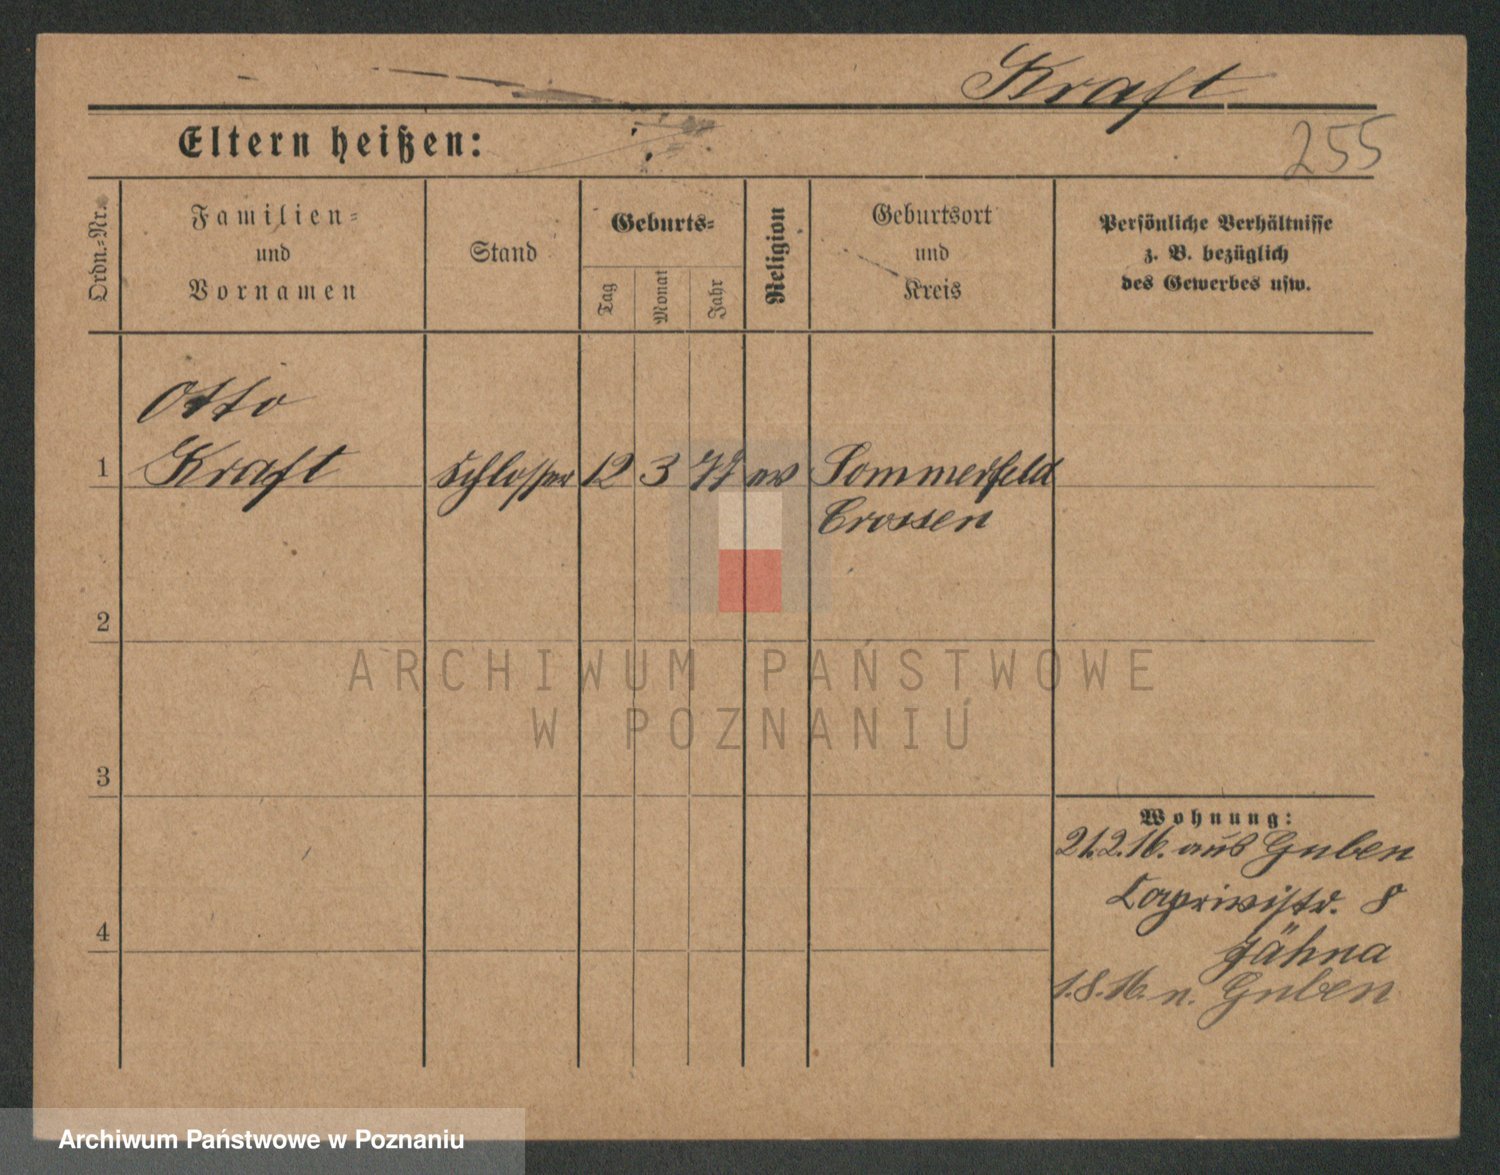 Kraft
255
Eltern heißen:
Ordn.-Nr.
Familien-
und
Vornamen
Stand
Geburts-
Tag
Monat
Jahr
Religion
Geburtsort
und
Kreis
Persönliche Verhältnisse
z. B. bezüglich
des Gewerbes usw.
Otto
1 Kraft Schlosser 12 3 77 ev Sommerfeld
Crossen
2
ARCHIWUM PAŃSTWOWE
W POZNANIU
3
Wohnung:
21.2.16. aus Guben
Caprivistr. 8
4
Jähna
1.8.16. n. Guben
Archiwum Państwowe w Poznaniu